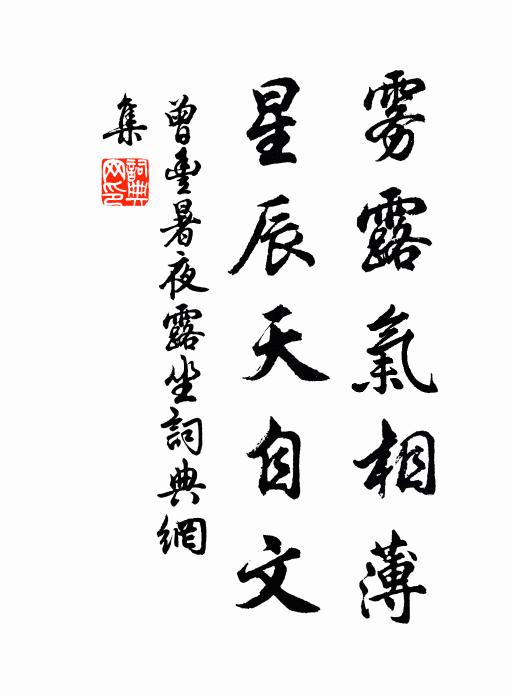 雾露氣相薄
星辰天自文
曾豐暑夜露坐詞典網
集
詞典网印